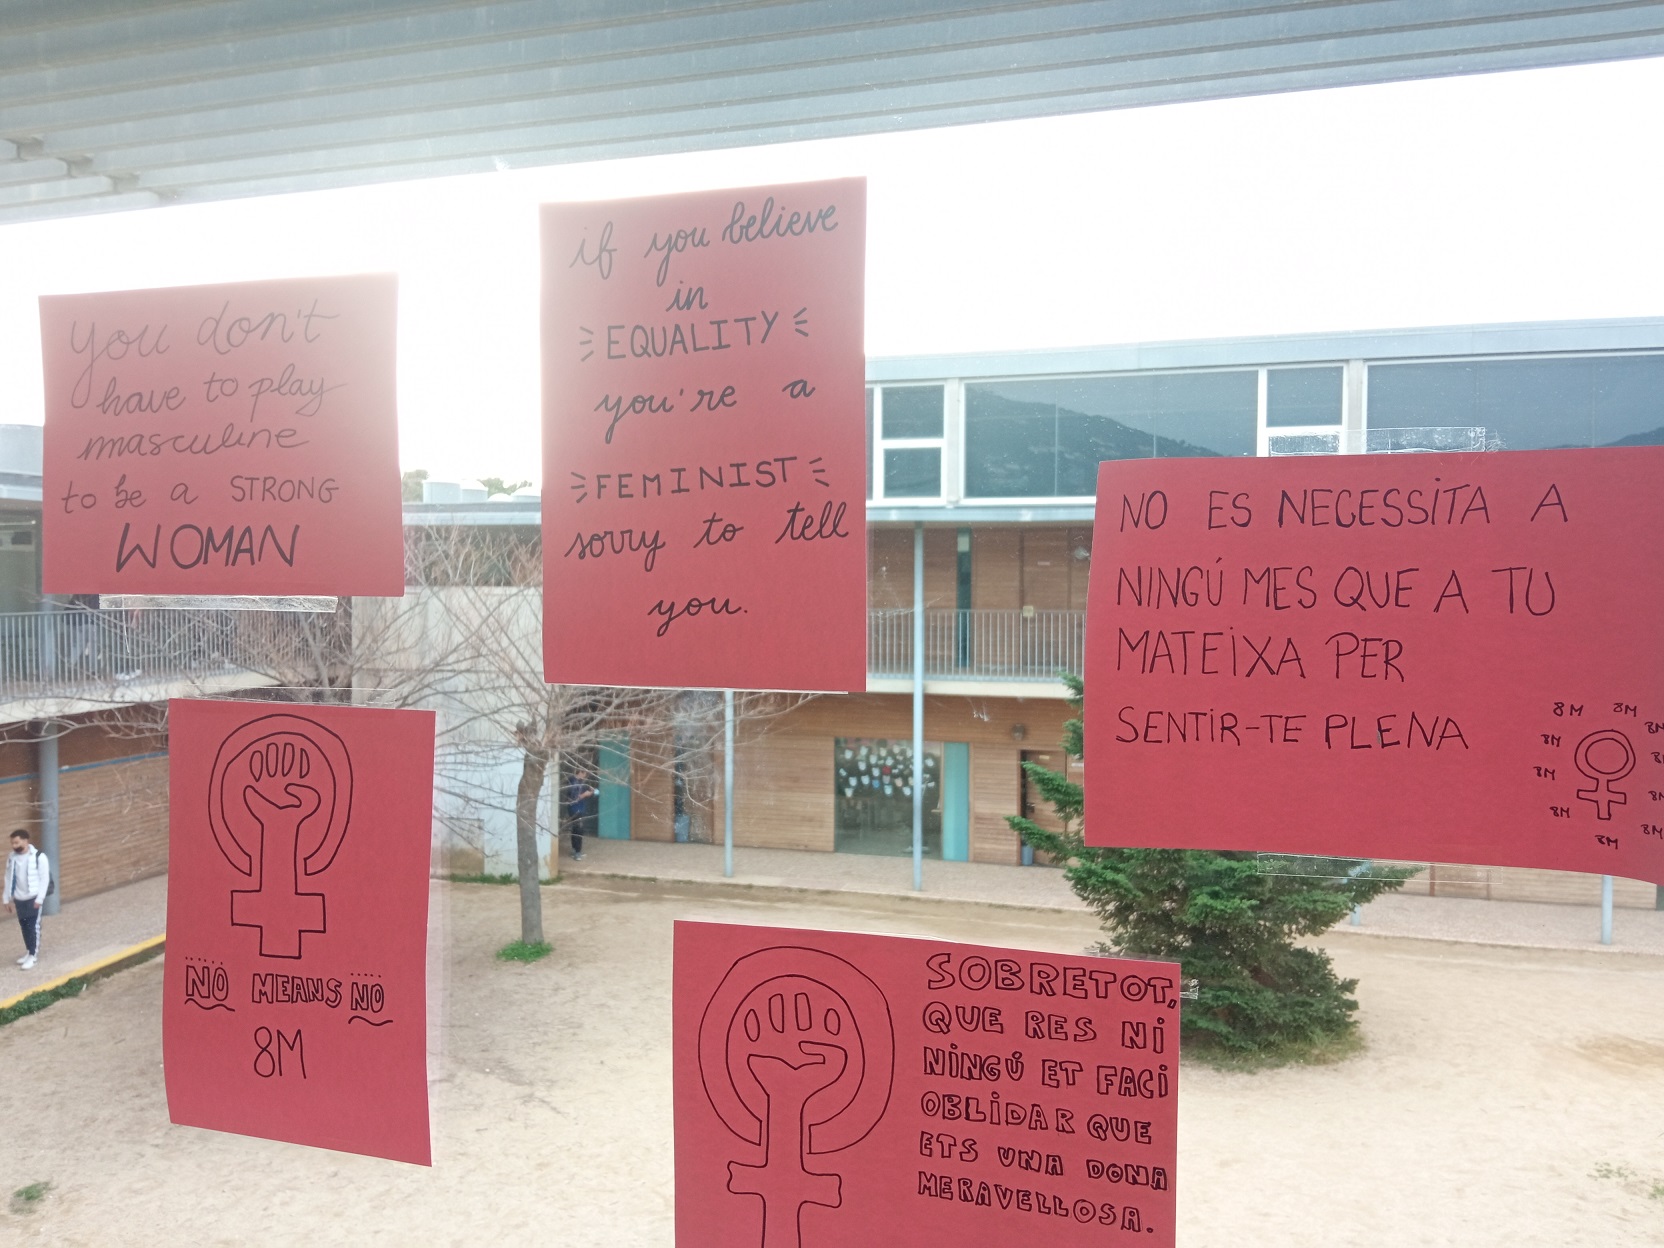 you don't
have to play
masculine
to be a STRONG
WOMAN
if you believe
in
EQUALITY
you're a
FEMINIST
sorry to tell
you.
NO ES NECESSITA A
NINGÚ MES QUE A TU
MATEIXA PER
SENTIR-TE PLENA
8M 8M
8M 8M
8M 8M
8M 8M
8M 8M
8M
NO MEANS NO
8M
SOBRETOT,
QUE RES NI
NINGÚ ET FACI
OBLIDAR QUE
ETS UNA DONA
MERAVELLOSA.